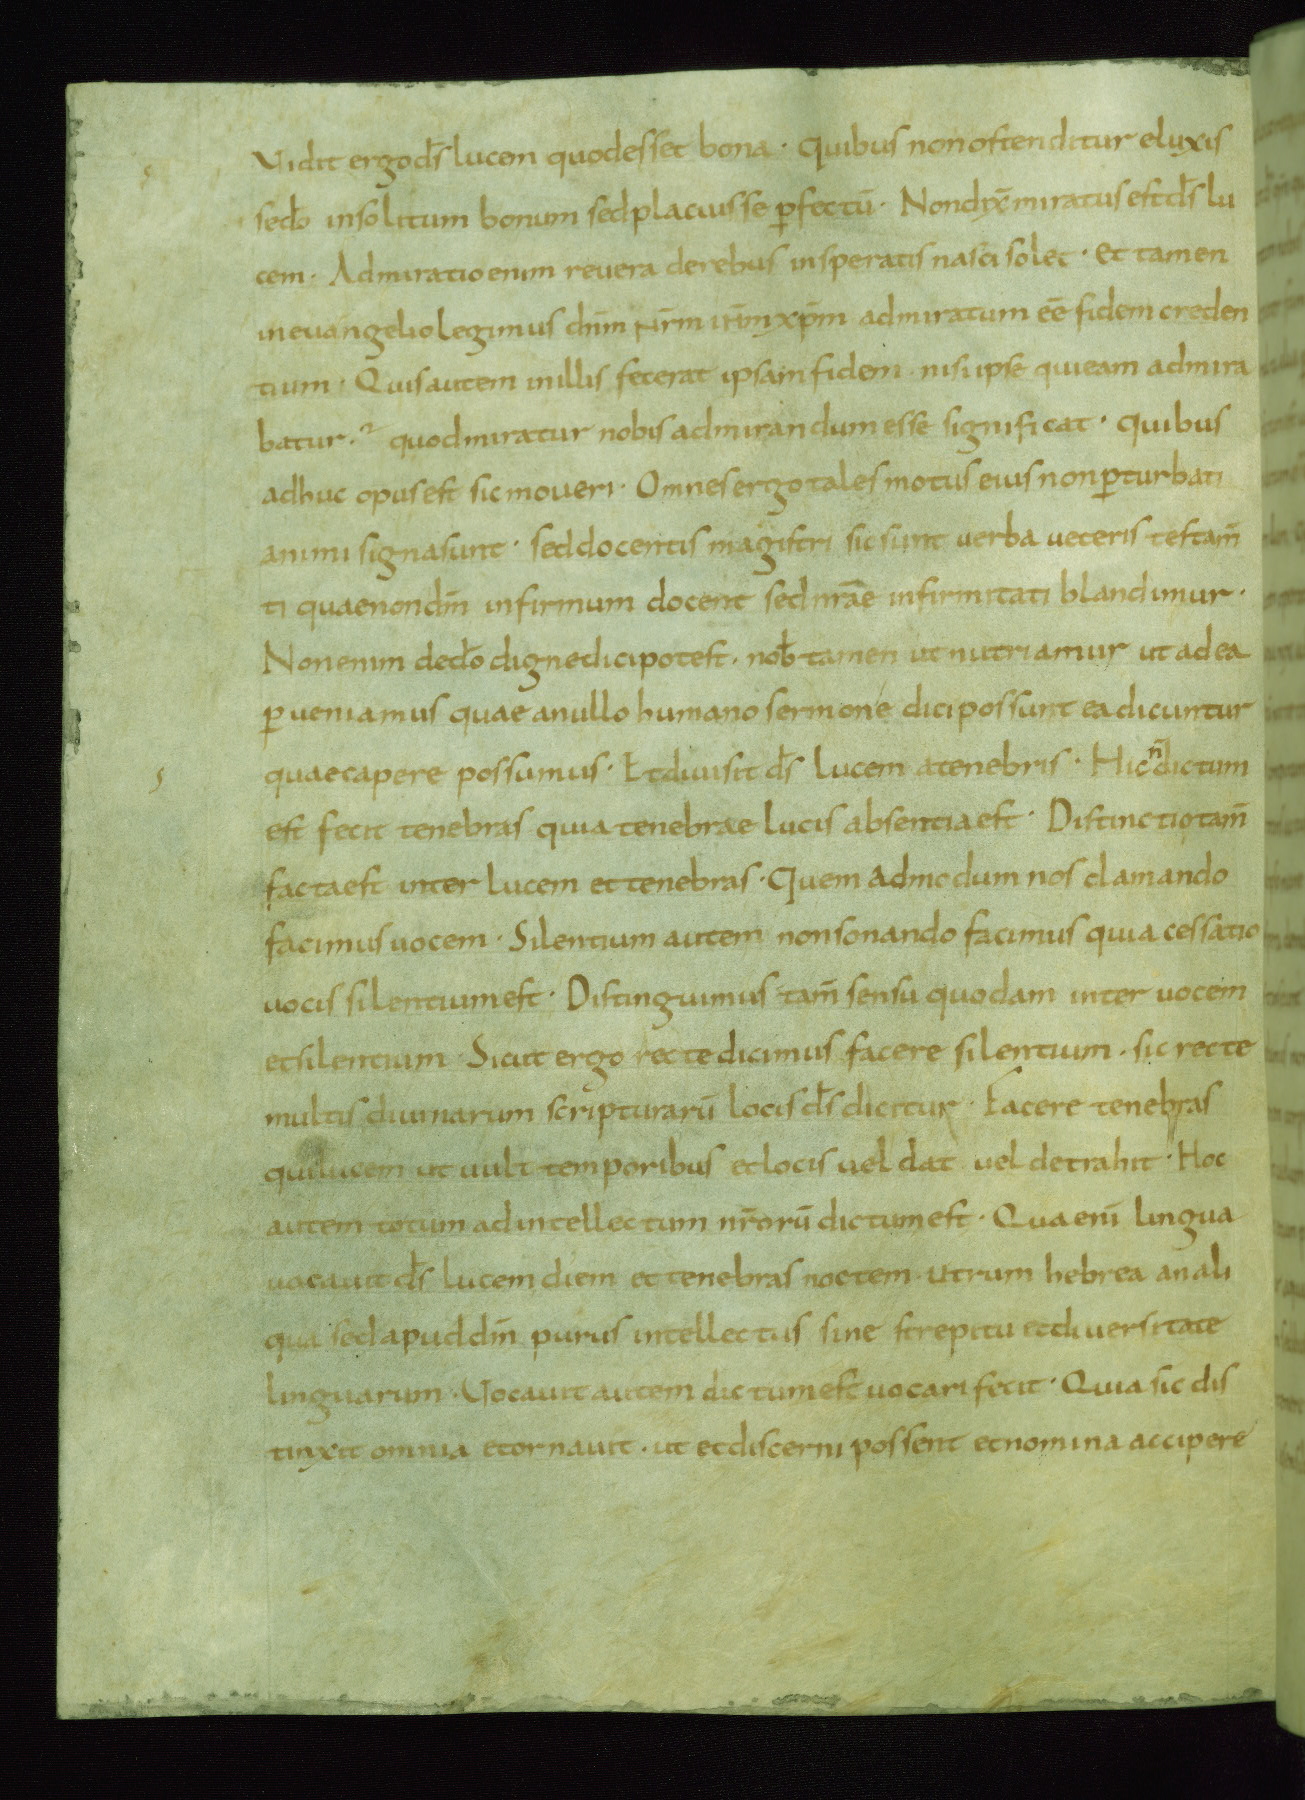 Vidit ergo d̄s lucem quod esset bona · Quibus non ostenditur eluxis
se d̄o insolitum bonum sed placuisse p̄fectū · Non dix̄ miratus est d̄s lu
cem · Admiratio enim revera de rebus insperatis nasci solet · Et tamen
in euangelio legimus dn̄m nr̄m ih̄m xp̄m admiratum eē fidem creden
tium · Quis autem in illis fecerat ipsam fidem · nisi ipse qui eam admira
batur · quod miratur nobis admirandum esse significat · Quibus
adhuc opus est sic moueri · Omnes ergo tales motus eius non p̄turbati
animi signa sunt · sed docentis magistri sic sunt uerba ueteris testam̄
ti quae non dn̄ infirmum docent sed nr̄ae infirmitati blandimur ·
Non enim de d̄o digne dici potest · nob̄ tamen ut nutriamur ut ad ea
p̄ueniamus quae a nullo humano sermone dici possunt ea dicuntur
quae capere possumus · Et diuisit d̄s lucem a tenebris · Hic n̄ dictum
est fecit tenebras quia tenebrae lucis absentia est · Distinctio tam̄
facta est inter lucem et tenebras · Quem admodum nos clamando
facimus uocem · Silentium autem non sonando facimus quia cessatio
uocis silentium est · Distinguimus tam̄ sensu quodam inter uocem
et silentium · Sicut ergo recte dicimus facere silentium · sic recte
multis diuinarum scripturarū locis d̄s dicitur · Facere tenebras
qui lucem ut uult temporibus et locis uel dat uel detrahit · Hoc
autem totum ad intellectum nr̄orū dictum est · Qua eni̅ lingua
uocauit d̄s lucem diem et tenebras noctem · utrum hebrea an ali
qua sed apud dn̄ purus intellectus sine strepitu et diuersitate
linguarum · Vocauit autem dictum est uocari fecit · Quia sic dis
tinxit omnia et ornauit · ut et discerni possent et nomina accipere